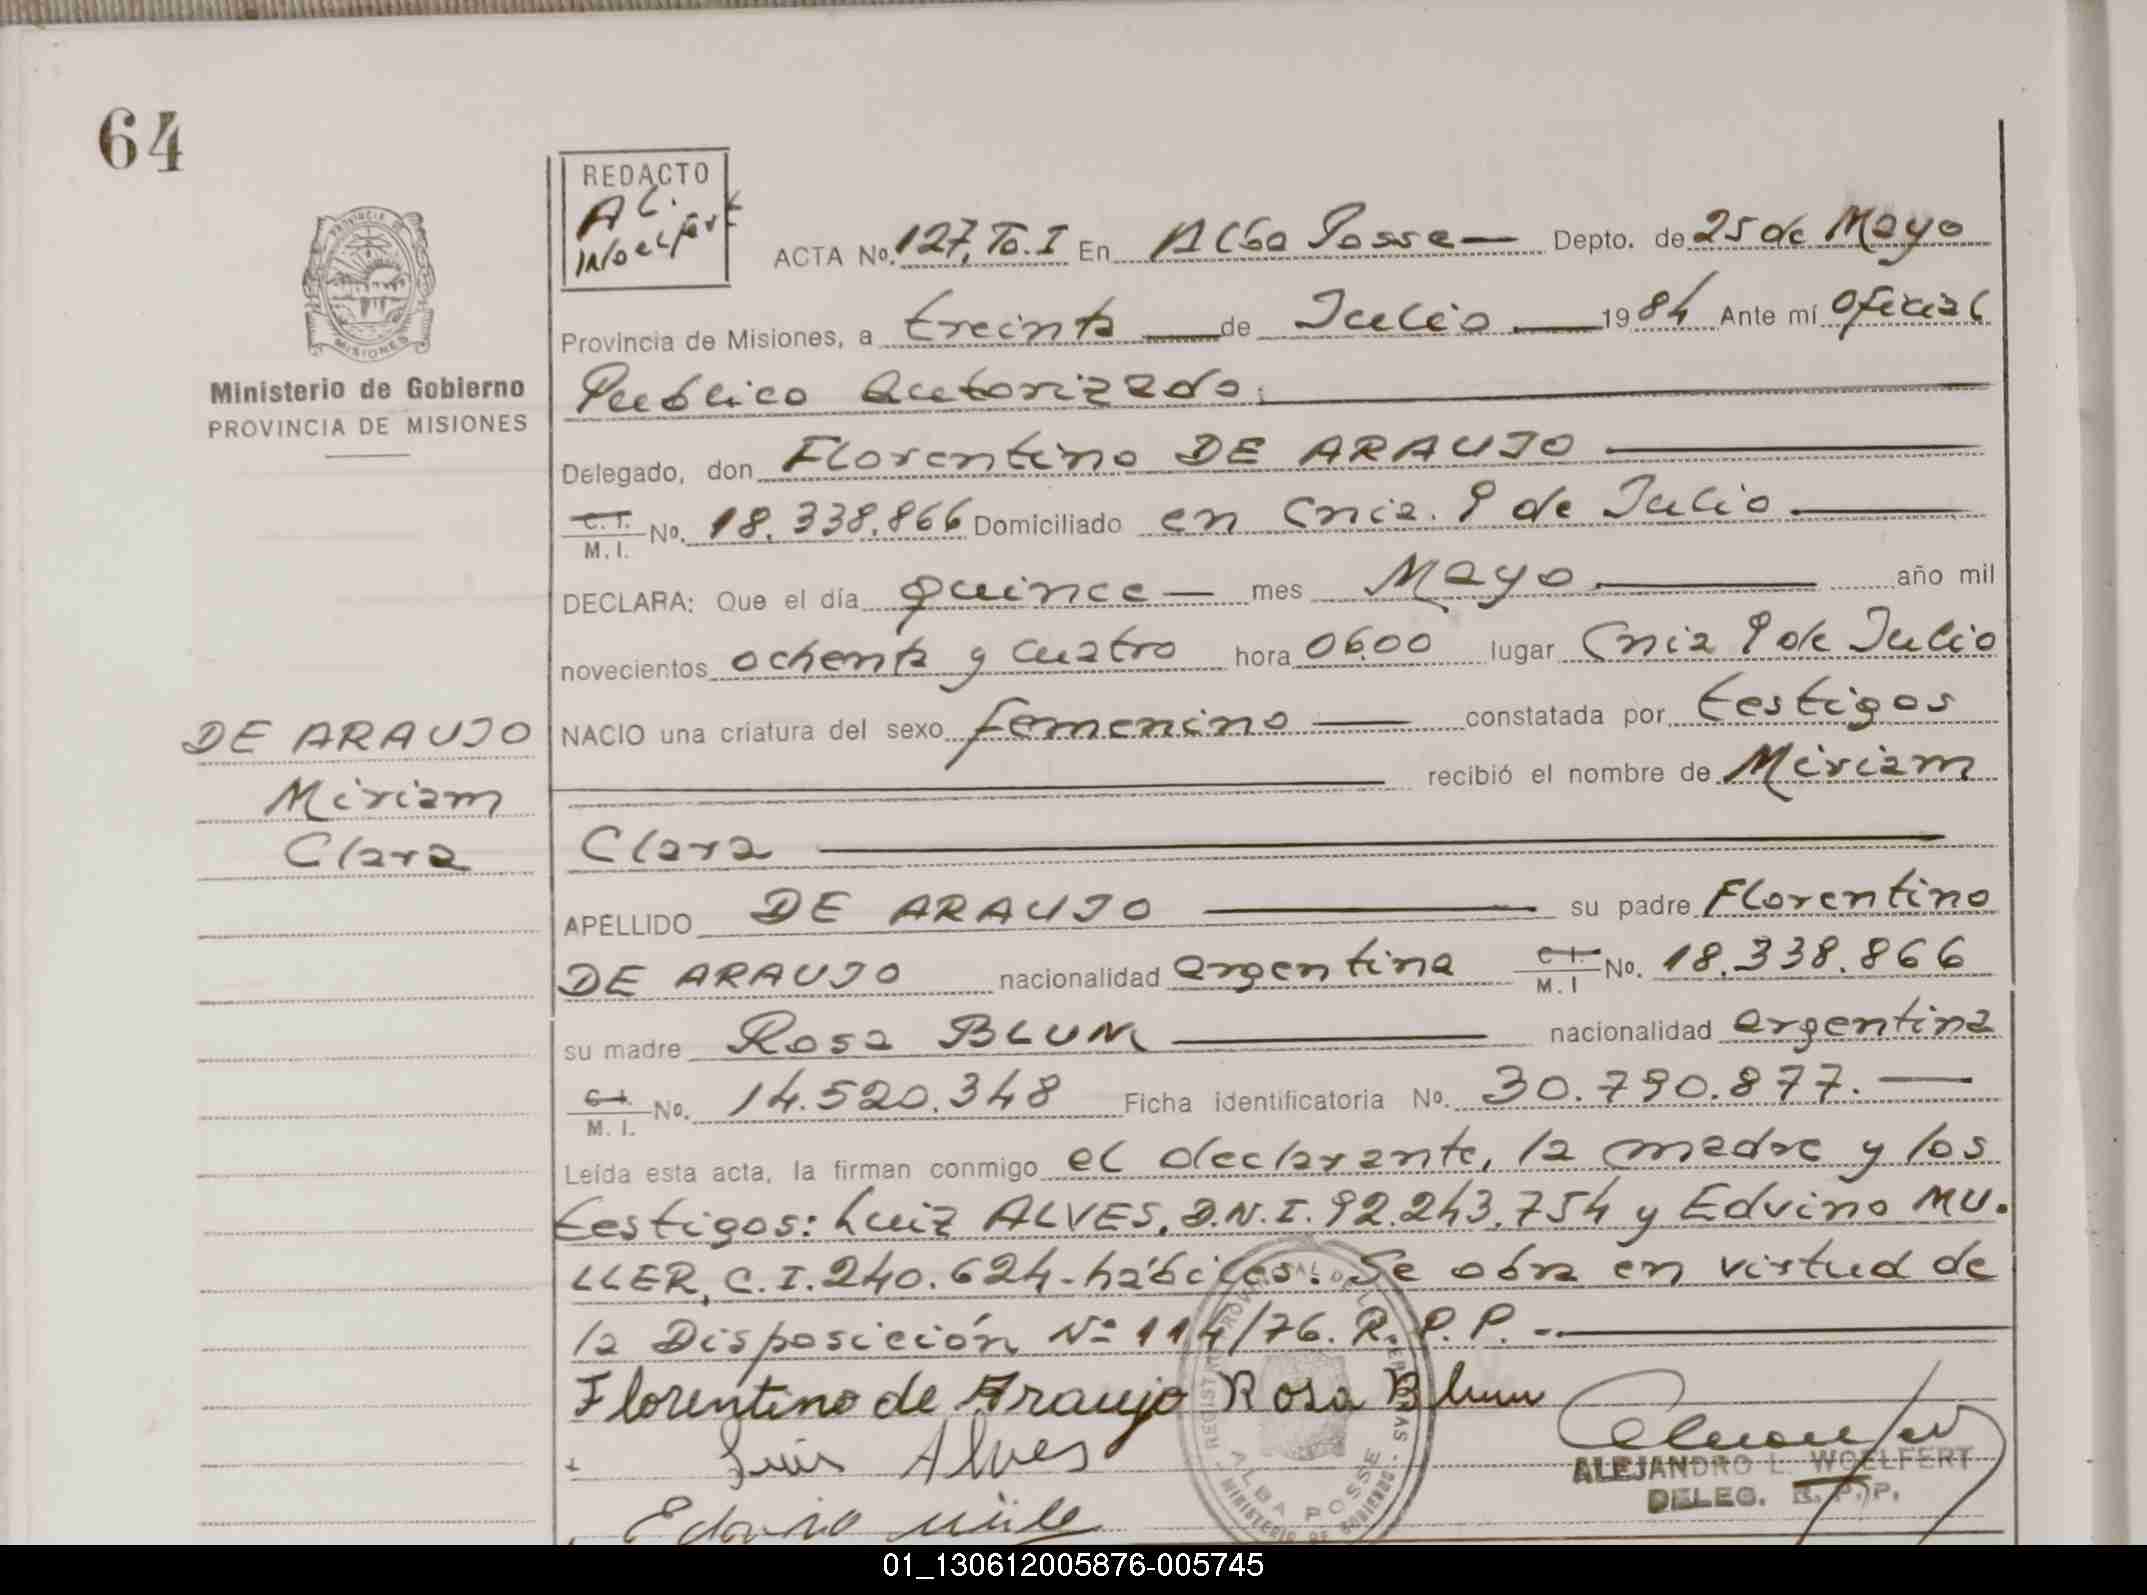 64
REDACTO
PROVINCIA DE
MISIONES
Ministerio de Gobierno
PROVINCIA DE MISIONES
ACTA No. 127, To. I En Alba Posse — Depto. de 25 de Mayo
Provincia de Misiones, a treinta — de Julio — 1984 Ante mí Oficial
Publico Autorizado.
Delegado, don Florentino DE ARAUJO
C. I. / M. I. No. 18.338.866 Domiciliado en Cnia. 9 de Julio
DECLARA: Que el día quince — mes Mayo — año mil
novecientos ochenta y cuatro hora 06.00 lugar Cnia 9 de Julio
NACIO una criatura del sexo femenino — constatada por testigos
recibió el nombre de Miriam
Clara
DE ARAUJO
Miriam
Clara
APELLIDO DE ARAUJO — su padre Florentino
DE ARAUJO nacionalidad argentina C I / M. I No. 18.338.866
su madre Rosa BLUM — nacionalidad argentina
C I / M. I. No. 14.520.348 Ficha identificatoria No. 30.790.877. —
Leída esta acta, la firman conmigo el declarante, la madre y los
testigos: Luiz ALVES, D.N.I. 92.243.754 y Edvino MU-
LLER, C.I. 240.624-hábiles. Se obra en virtud de
la Disposición Nº 114/76. R.P.P. -
Florentino de Araujo Rosa Blum
Luis Alves
Edvino
REGISTRO PROVINCIAL DE LAS PERSONAS
ALBA POSSE
MINISTERIO DE GOBIERNO
ALEJANDRO L. WOELFERT
DELEG. R. P. P.
01_130612005876-005745